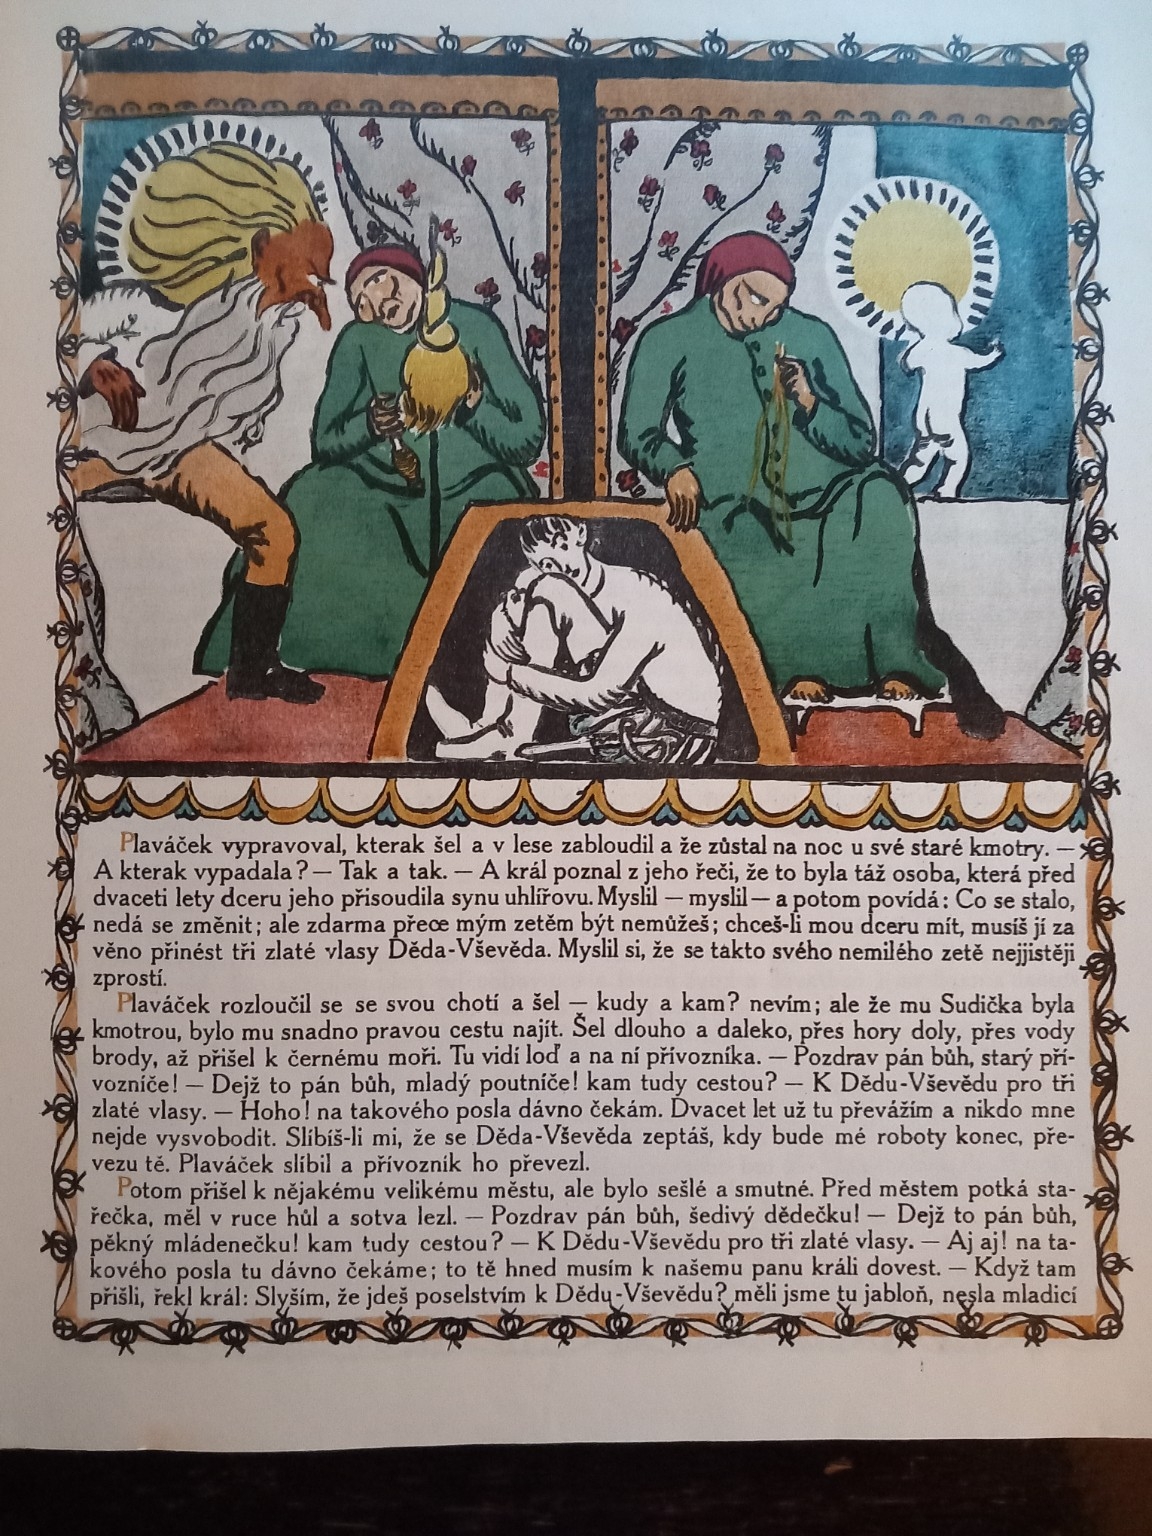 Plaváček vypravoval, kterak šel a v lese zabloudil a že zůstal na noc u své staré kmotry. —
A kterak vypadala? — Tak a tak. — A král poznal z jeho řeči, že to byla táž osoba, která před
dvaceti lety dceru jeho přisoudila synu uhlířovu. Myslil — myslil — a potom povídá: Co se stalo,
nedá se změnit; ale zdarma přece mým zetěm být nemůžeš; chceš-li mou dceru mít, musíš jí za
věno přinést tři zlaté vlasy Děda-Vševěda. Myslil si, že se takto svého nemilého zetě nejjistěji
zprostí.
Plaváček rozloučil se se svou chotí a šel — kudy a kam? nevím; ale že mu Sudička byla
kmotrou, bylo mu snadno pravou cestu najít. Šel dlouho a daleko, přes hory doly, přes vody
brody, až přišel k černému moři. Tu vidí loď a na ní přívozníka. — Pozdrav pán bůh, starý pří-
vozníče! — Dejž to pán bůh, mladý poutníče! kam tudy cestou? — K Dědu-Vševědu pro tři
zlaté vlasy. — Hoho! na takového posla dávno čekám. Dvacet let už tu převážím a nikdo mne
nejde vysvobodit. Slíbíš-li mi, že se Děda-Vševěda zeptáš, kdy bude mé roboty konec, pře-
vezu tě. Plaváček slíbil a přívozník ho převezl.
Potom přišel k nějakému velikému městu, ale bylo sešlé a smutné. Před městem potká sta-
řečka, měl v ruce hůl a sotva lezl. — Pozdrav pán bůh, šedivý dědečku! — Dejž to pán bůh,
pěkný mládenečku! kam tudy cestou? — K Dědu-Vševědu pro tři zlaté vlasy. — Aj aj! na ta-
kového posla tu dávno čekáme; to tě hned musím k našemu panu králi dovest. — Když tam
přišli, řekl král: Slyším, že jdeš poselstvím k Dědu-Vševědu? měli jsme tu jabloň, nesla mladicí